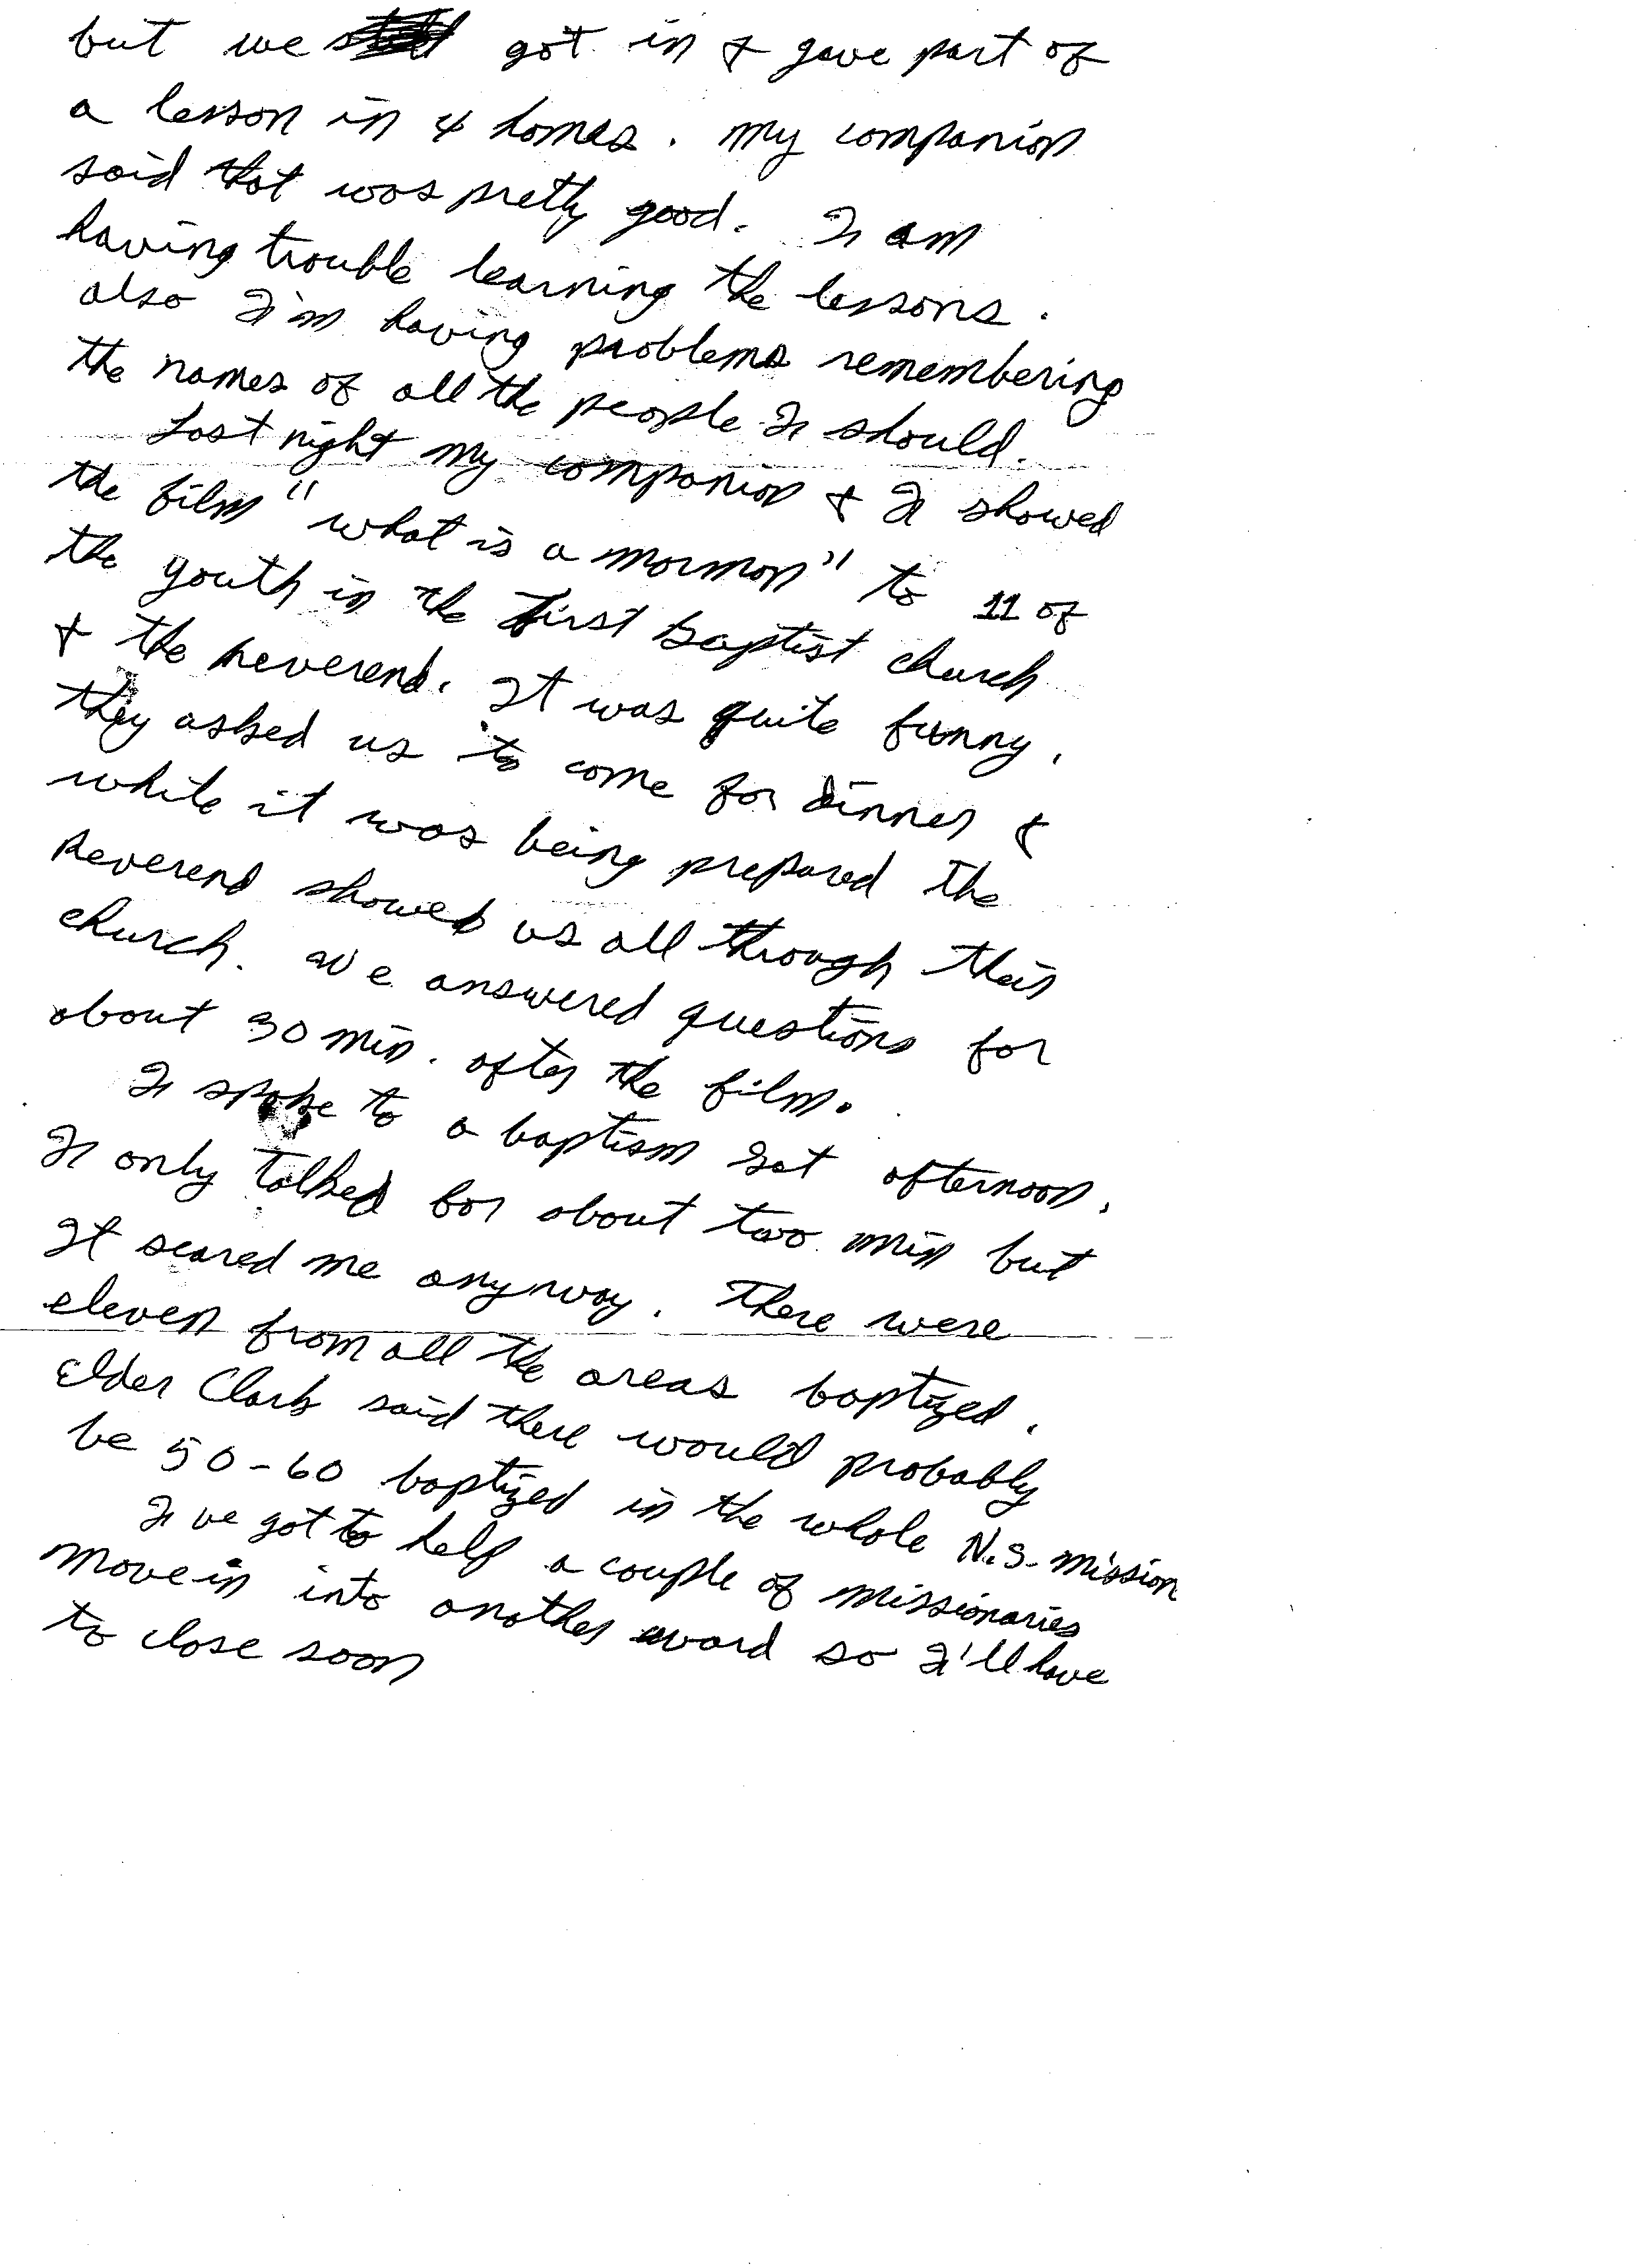 but we got in & gave part of
a lesson in 4 homes. my companion
said that was pretty good. I am
having trouble learning the lessons.
also I'm having problems remembering
the names of all the people I should.
Last night my companion & I showed
the film "what is a mormon" to 11 of
the youth in the First baptist church
& the Reverend. It was quite funny.
they asked us to come for dinner &
while it was being prepared the
Reverend showed us all through their
church. We answered questions for
about 30 min. after the film.
I spoke to a baptism Sat afternoon.
I only talked for about two min but
It scared me anyway. There were
eleven from all the areas baptized.
Elder Clark said there would probably
be 50-60 baptized in the whole N.S. mission
I've got to help a couple of missionaries
move in into another ward so I'll have
to close soon